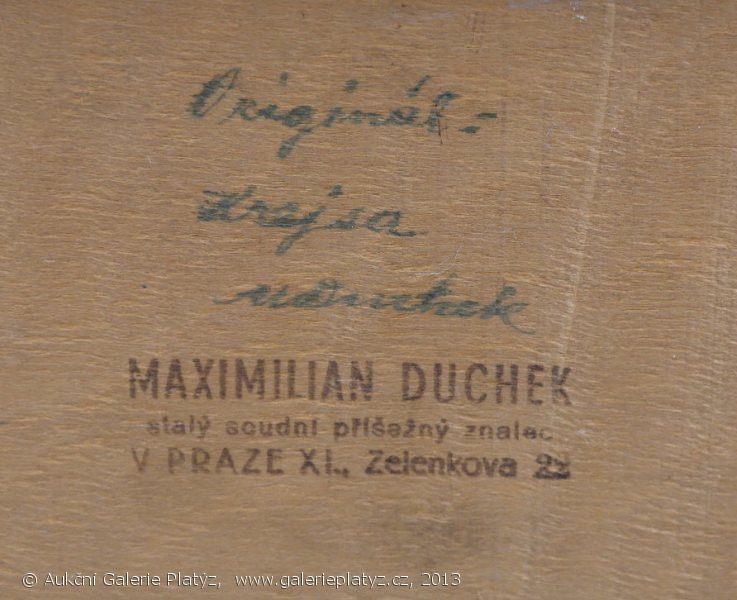 Originál:
Krajsa
MDuchek
MAXIMILIAN DUCHEK
stalý soudní přísežný znalec
V PRAZE XI., Zelenkova 22
© Aukční Galerie Platýz, www.galerieplatyz.cz, 2013